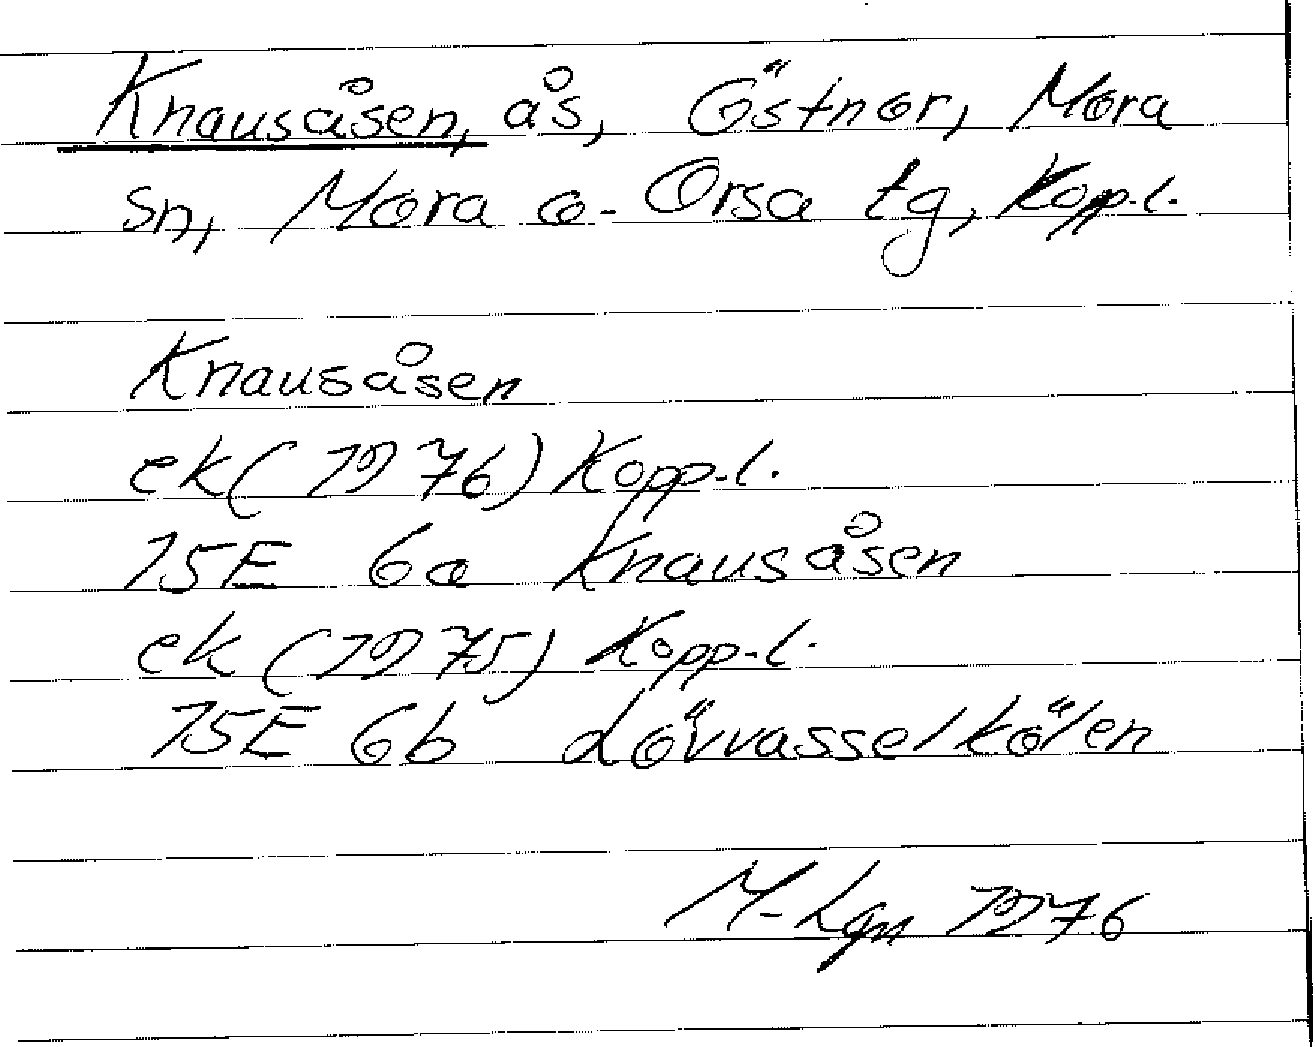 Knausåsen, ås, Östnor, Mora
sn, Mora o. Orsa tg, Kopp.l.
Knausåsen
ek(1976) Kopp.l.
15E 6a Knausåsen
ek (1975) Kopp.l.
15E 6b Lövvasselkölen
M-Lgn 1976